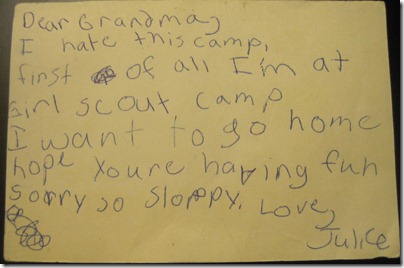 Dear Grandma,
I hate this camp.
first of all I'm at
girl scout camp
I want to go home
hope youre having fun
sorry so sloppy. Love,
Julice